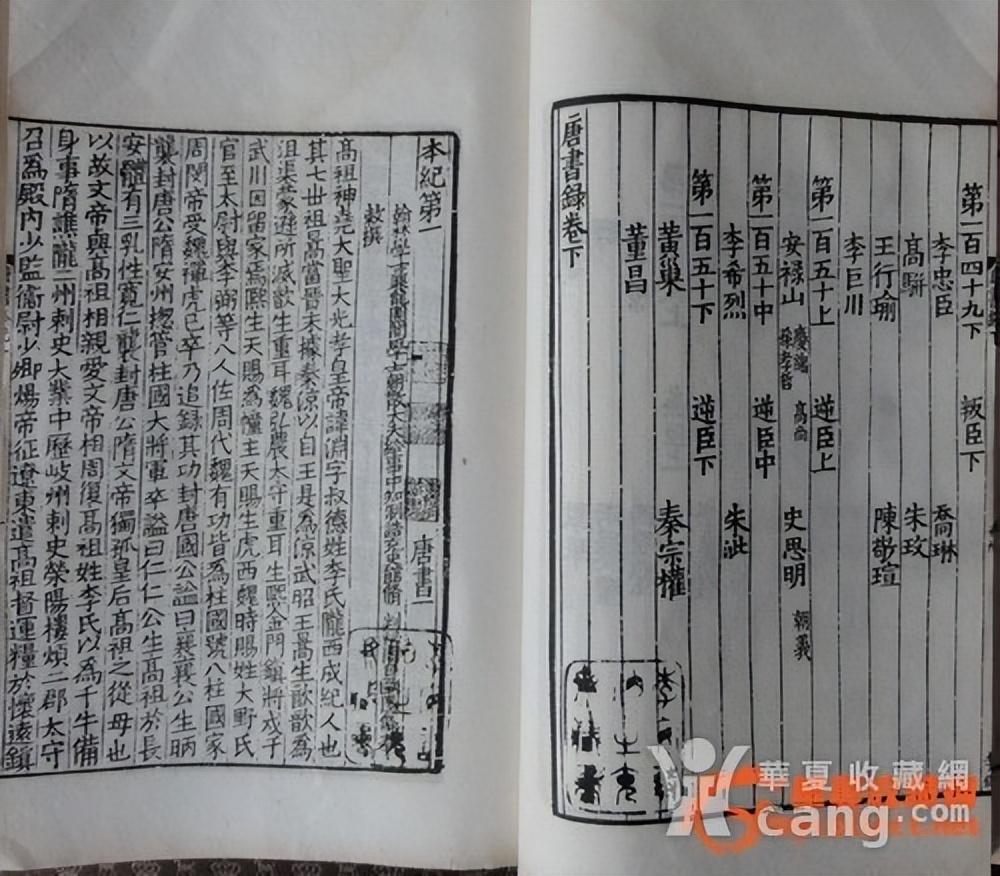 第一百四十九下 叛臣下
李忠臣 喬琳
高駢 朱玫
王行瑜 陳敬瑄
李巨川
第一百五十上 逆臣上
安祿山 慶緒 高尚 孫孝哲 史思明 朝義
第一百五十中 逆臣中
李希烈 朱泚
第一百五十下 逆臣下
黃巢 秦宗權
董昌
唐書錄卷下
本紀第一 唐書一
翰林學士兼龍圖閣學士朝散大夫給事中知制誥充史館脩
敕撰
高祖神堯大聖大光孝皇帝諱淵字叔德姓李氏隴西成紀人也
其七世祖暠當晉末據秦涼以自王是為涼武昭王暠生歆歆為
沮渠蒙遜所滅歆生重耳魏弘農太守重耳生熙金門鎮將戍于
武川因留家焉熙生天賜為幢主天賜生虎西魏時賜姓大野氏
官至太尉與李弼等八人佐周代魏有功皆為柱國號八柱國家
周閔帝受魏禪虎已卒乃追錄其功封唐國公謚曰襄襄公生昞
襲封唐公隋安州揔管柱國大將軍卒謚曰仁仁公生高祖於長
安體有三乳性寬仁襲封唐公隋文帝獨孤皇后高祖之從母也
以故文帝與高祖相親愛文帝相周復高祖姓李氏以為千牛備
身事隋譙隴二州刺史大業中歷岐州刺史榮陽樓煩二郡太守
召為殿內少監衛尉少卿煬帝征遼東遣高祖督運糧於懷遠鎮
華夏收藏網
cang.com